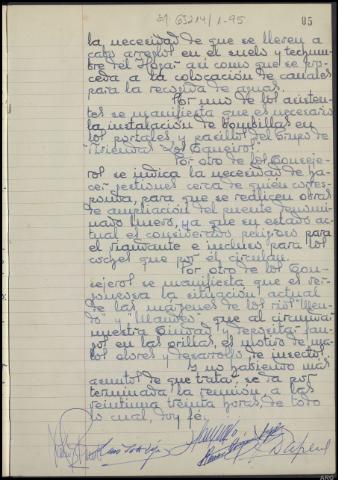 (63214) 1-95
95
la necesidad de que se lleven a
cabo arreglos en el suelo y techum-
bre del Hogar así como que se pro-
ceda a la colocación de canales
para la recogida de aguas.
Por uno de los asisten-
tes se manifiesta que es necesario
la instalación de bombillas en
los portales y pasillos del Grupo de
Viviendas "Los
Por otro de los Conseje-
ros se indica la necesidad de ha-
cer gestiones cerca de quien corres-
ponda, para que se realicen obras
de ampliación del puente denomi-
nado ya que en estado ac-
tual el considerado peligroso para
el viandante e incluso para los
coches que por él circulan.
Por otro de los Con-
sejeros se manifiesta que es ver-
gonzosa la situación actual
de las márgenes de los ríos "Men-
do" y "Mandeo" que al circunvalar
nuestra Ciudad y depositar fan-
gos en las orillas, es motivo de ma-
los olores y desarrollo de insectos.
Y no habiendo más
asuntos de que tratar se da por
terminada la reunión, a las
veintiuna treinta horas, de todo
lo cual, doy fé.
ARG